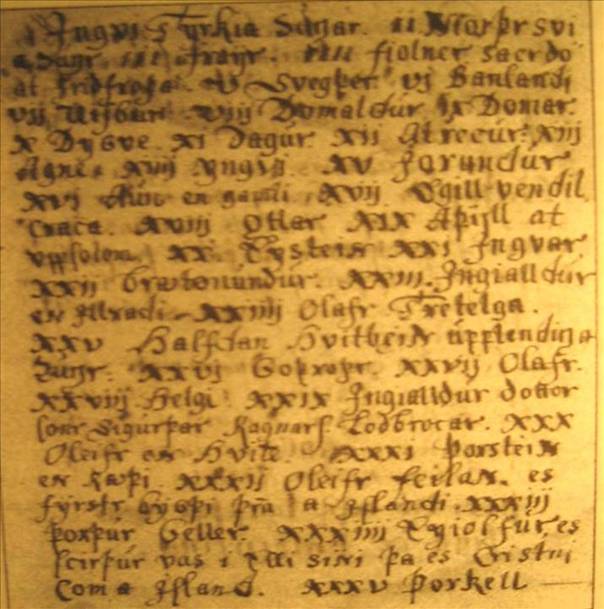 i Jngvi Tyrkia Cungr. ii Niorþr svi
a Cungr. iii Frayr. iiii fiolner sa er do
at fridfroþa. v Svegþer. vi Vanlandi
vij Visbur. viij Domaldur ix Domar.
x Dygve. xi Dagur xij Alrecur. xiij
Agni. xiiij Yngvi. xv Jorundur
xvj Aun en gamli. xvij Egill vendil
craca. xviij Ottar xix Aþisll at
uppsolom. xx Eysteirn xxi Jngvar
xxij Brautonundur. xxiij. Jngialldur
en illradi. xxiiij Olafr Tretelga.
xxv Halfdan Hvitbeirn upplendinga
Cungr. xxvj Goþroþr. xxvij Olafr.
xxviij Helgi. xxix Jngialldur dottor
sonr Sigurþar Ragnars Lodbrocar. xxx
Oleifr en Hvite. xxxi Þorstein
en Rauþi. xxxij Oleifr feilan. es
fyrstr bygþi þra a Islandi. xxxiij
Þorþur Geller. xxxiiij Eyiolfur es
scirþur vas i elli sini þa es Cristni
Com a Island. xxxv Þorkell